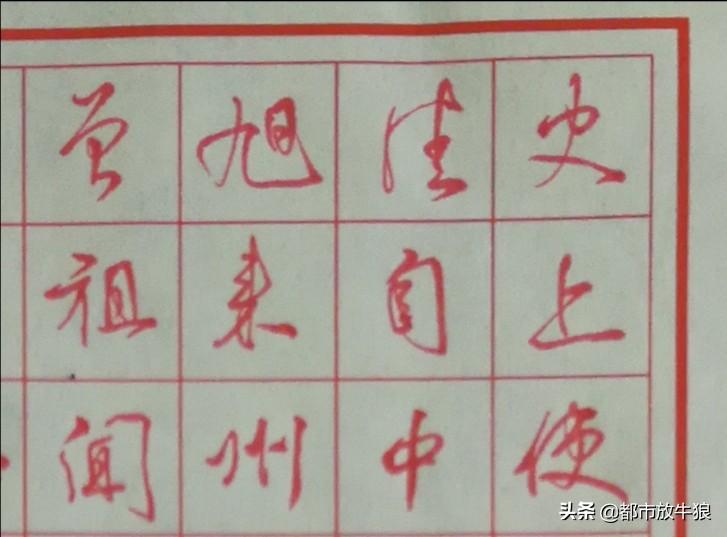 史上使
自中
旭来州
曾祖闻
头条 @都市放牛狼